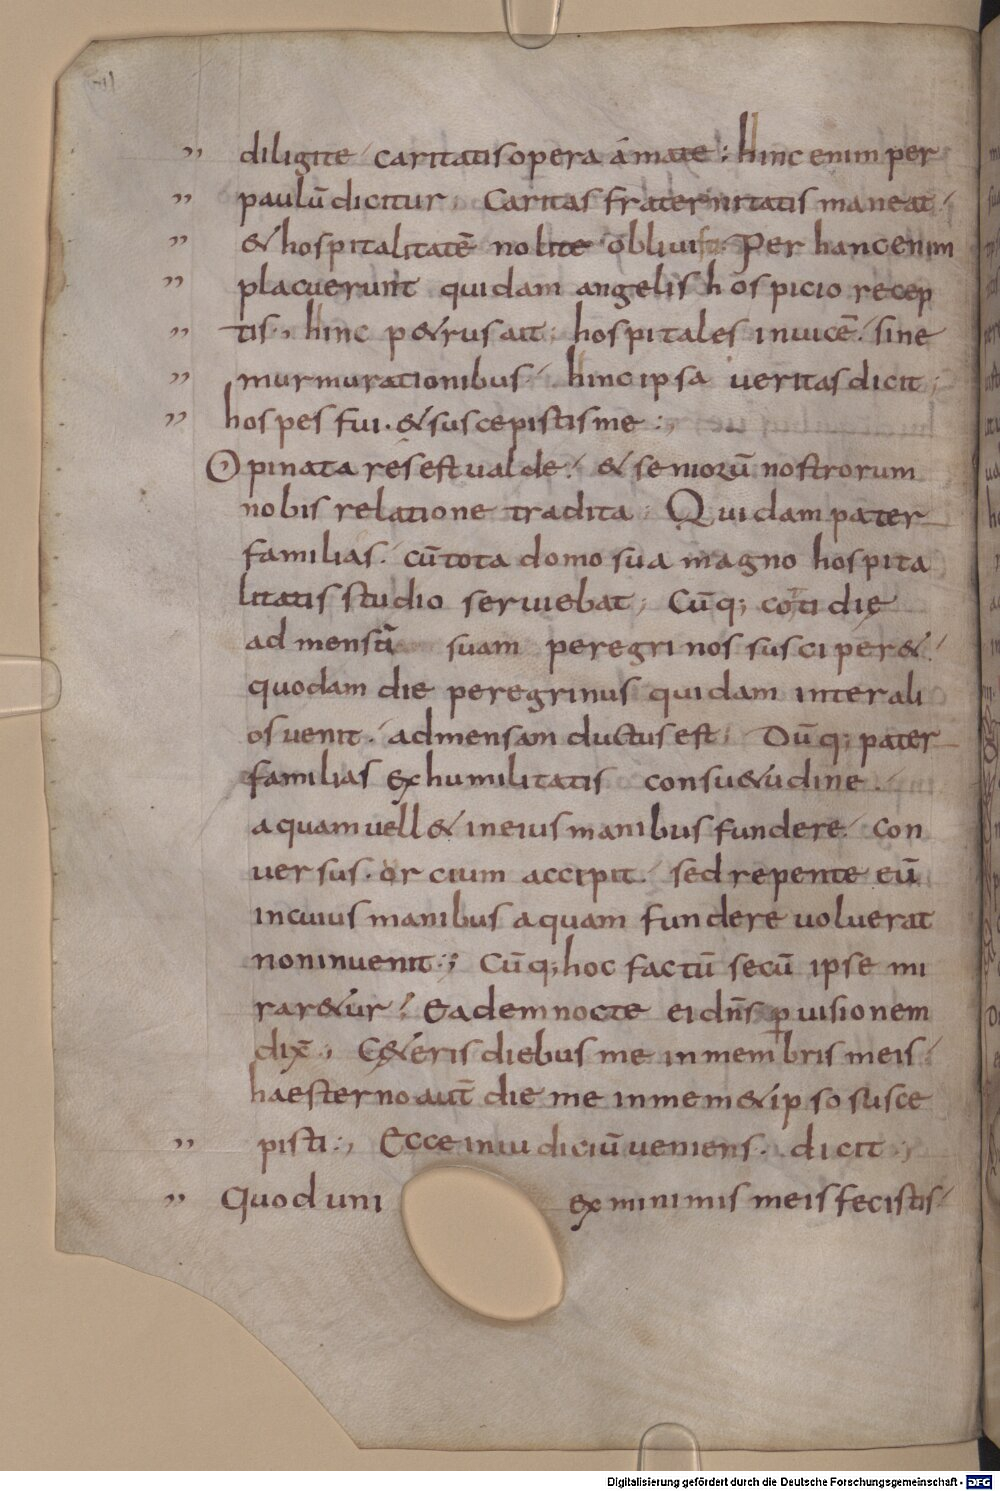 " diligite· caritatis opera amate; hinc enim per
" paulū dicitur, Caritas fraternitatis maneat·
" & hospitalitatē nolite obliuisci. Per hanc enim
" placuerunt quidam angelis hospicio recep
" tis., hinc p&rus ait; hospitales inuicē. sine
" murmurationibus· hinc ipsa ueritas dicit;
" hospes fui. & suscepistis me :,
Opinata res est ualde: & seniorū nostrorum
nobis relatione tradita; Quidam pater
familias. cū tota domo sua magno hospita
litatis studio seruiebat; Cūq; cotidię
ad mensā suam peregrinos susciper&.
quodam die peregrinus quidam inter ali
os uenit. ad mensam ductus est; Dūq; pater
familias ex humilitatis consu&udine.
aquam uell& in eius manibus fundere· con
uersus. orcium accipit. sed repente eū
in cuius manibus aquam fundere uoluerat
non inuenit.; Cūq; hoc factū secū ipse mi
rar&ur; Eadem nocte ei dn̄s ꝑ uisionem
dix̄., C&eris diebus me in membris meis·
haesterno aut̄ die me in mem&ipso susce
" pisti:, Ecce in iudiciū ueniens. dicit;
" Quod uni ex minimis meis fecistis·
Digitalisierung gefördert durch die Deutsche Forschungsgemeinschaft - DFG